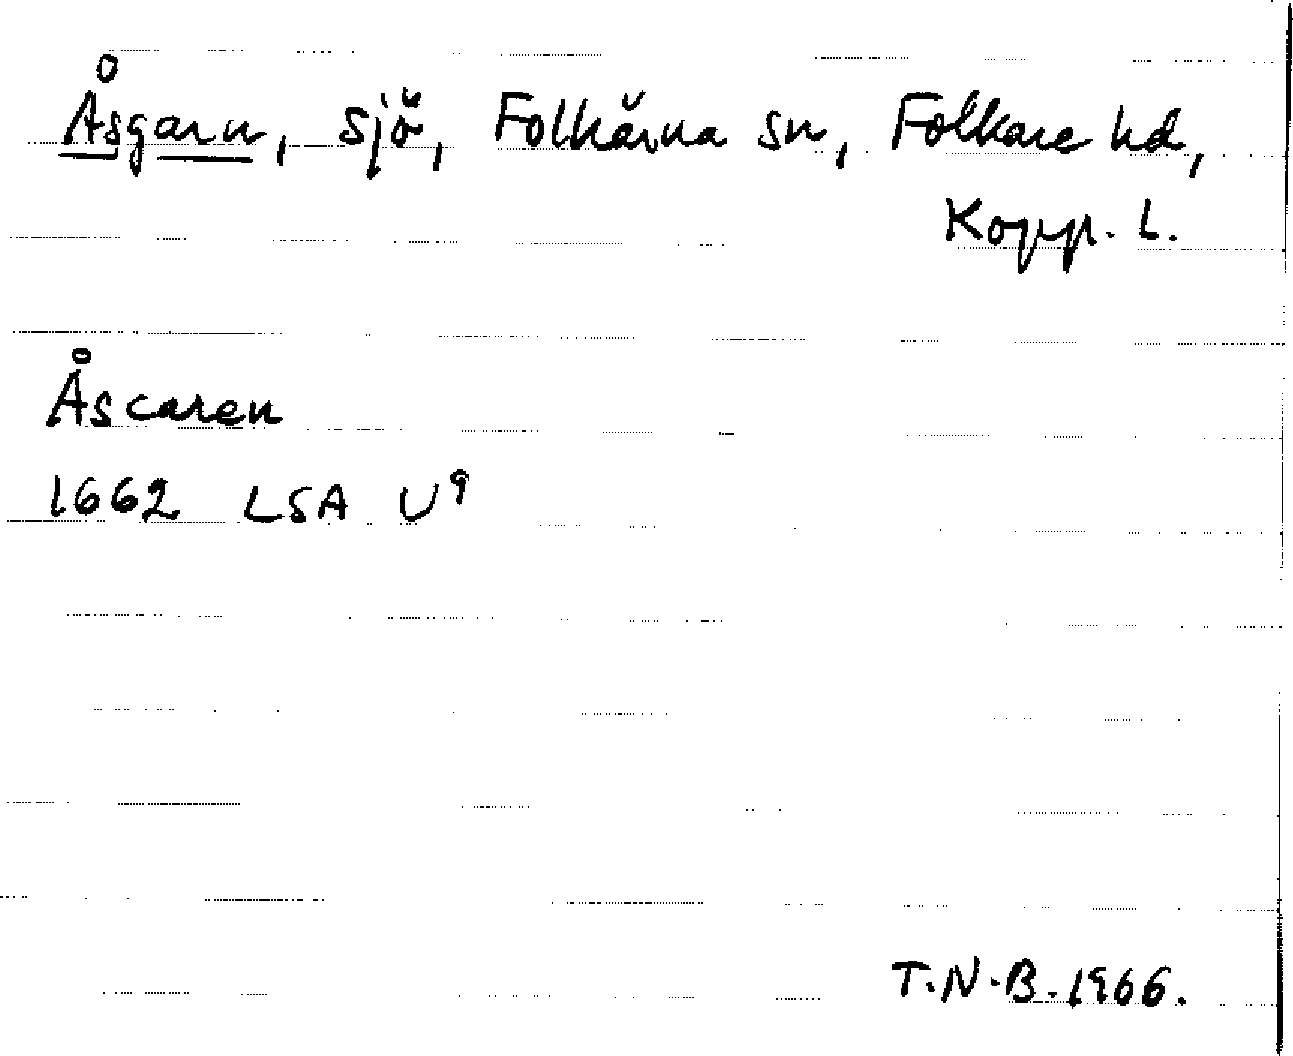 Åsgarn, sjö, Folkärna sn, Folkare hd,
Kopp. l.
Åscaren
1662 LSA U⁹
T.N.B. 1966.